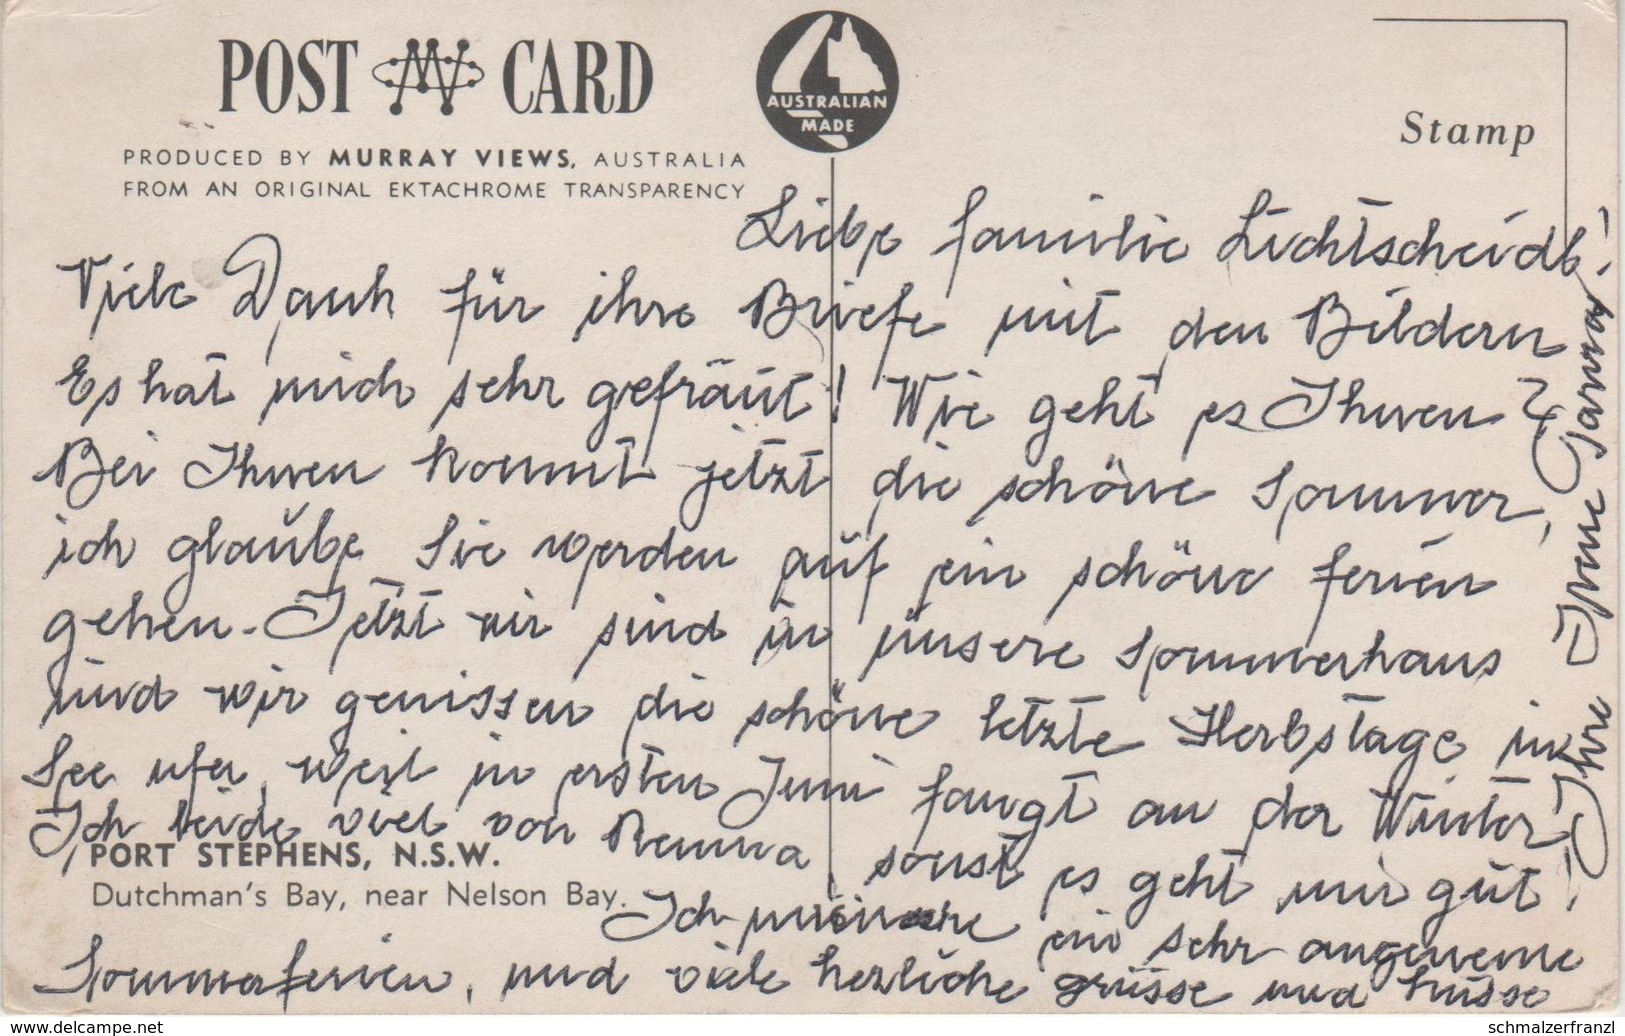 POST CARD
AUSTRALIAN
MADE
Stamp
PRODUCED BY MURRAY VIEWS, AUSTRALIA
FROM AN ORIGINAL EKTACHROME TRANSPARENCY
Liebe familie Lichtscheidl!
Viele Dank für ihre Briefe mit den Bildern
Es hat mich sehr gefräut! Wie geht es Ihnen?
Bei Ihnen kommt jetzt die schöne Sommer,
ich glaube Sie werden auf ein schöne ferien
gehen. Jetzt wir sind in unsere Sommerhaus
und wir genissen die schöne letzte Herbstage in
See ufer, weil in ersten Juni fangt an der Winter.
Ich leide viel von Reuma, sonst es geht mir gut!
PORT STEPHENS, N.S.W.
Dutchman's Bay, near Nelson Bay.
Ich ein sehr angeneme
Sommerferien, und viele herzliche grüsse und küsse
Ihre Irene
© www.delcampe.net
schmalzerfranzl